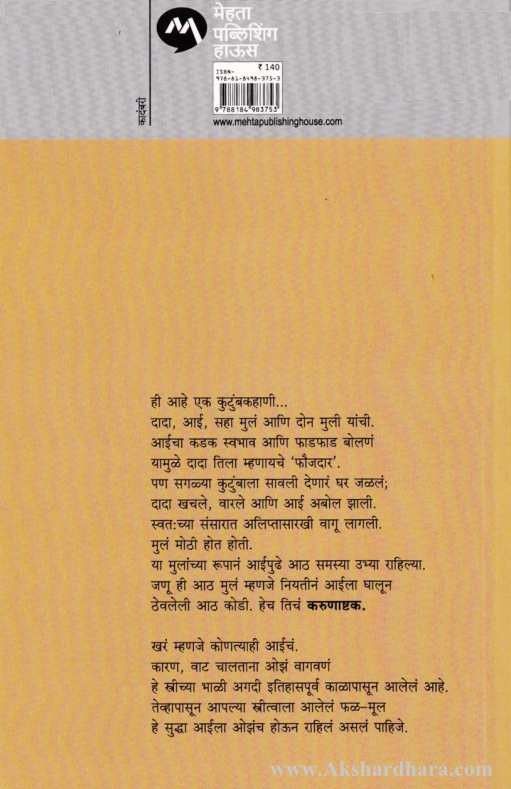 मेहता
पब्लिशिंग
हाऊस
₹ 140
ISBN-
978-81-8498-375-3
9788184983753
www.mehtapublishinghouse.com
कादंबरी
ही आहे एक कुटुंबकहाणी...
दादा, आई, सहा मुलं आणि दोन मुली यांची.
आईचा कडक स्वभाव आणि फाडफाड बोलणं
यामुळे दादा तिला म्हणायचे ‘फौजदार’.
पण सगळ्या कुटुंबाला सावली देणारं घर जळलं;
दादा खचले, वारले आणि आई अबोल झाली.
स्वत:च्या संसारात अलिप्तासारखी वागू लागली.
मुलं मोठी होत होती.
या मुलांच्या रूपानं आईपुढे आठ समस्या उभ्या राहिल्या.
जणू ही आठ मुलं म्हणजे नियतीनं आईला घालून
ठेवलेली आठ कोडी. हेच तिचं करुणाष्टक.
खरं म्हणजे कोणत्याही आईचं.
कारण, वाट चालताना ओझं वागवणं
हे स्त्रीच्या भाळी अगदी इतिहासपूर्व काळापासून आलेलं आहे.
तेव्हापासून आपल्या स्त्रीत्वाला आलेलं फळ–मूल
हे सुद्धा आईला ओझंच होऊन राहिलं असलं पाहिजे.
www.Akshardhara.com